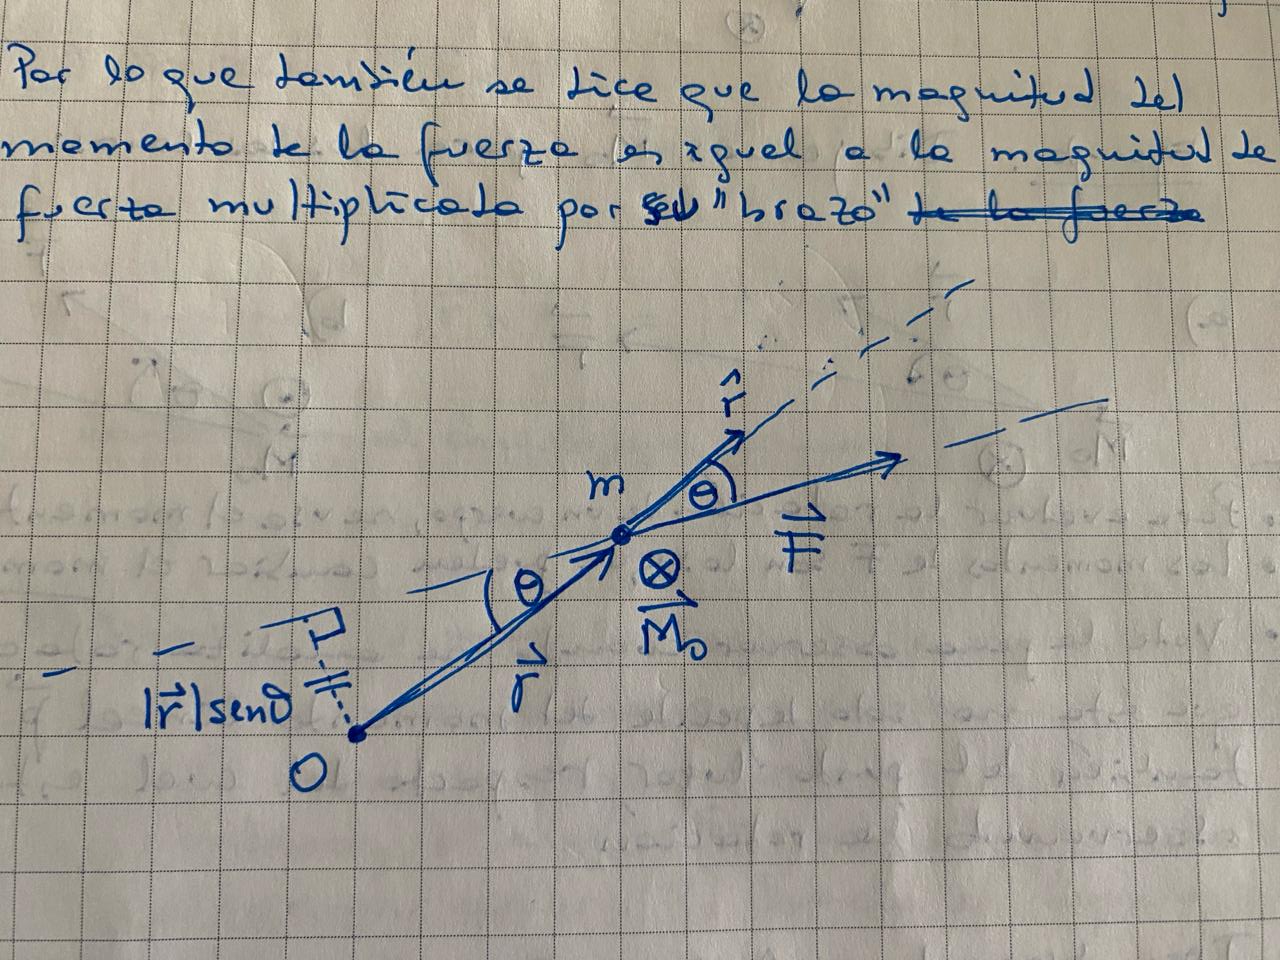 Por lo que también se dice que la magnitud del
momento de la fuerza es igual a la magnitud de
fuerza multiplicada por su "brazo" de la fuerza
r̂
m
θ
F⃗
θ
⊗
M⃗₀
r⃗
|r⃗|senθ
O